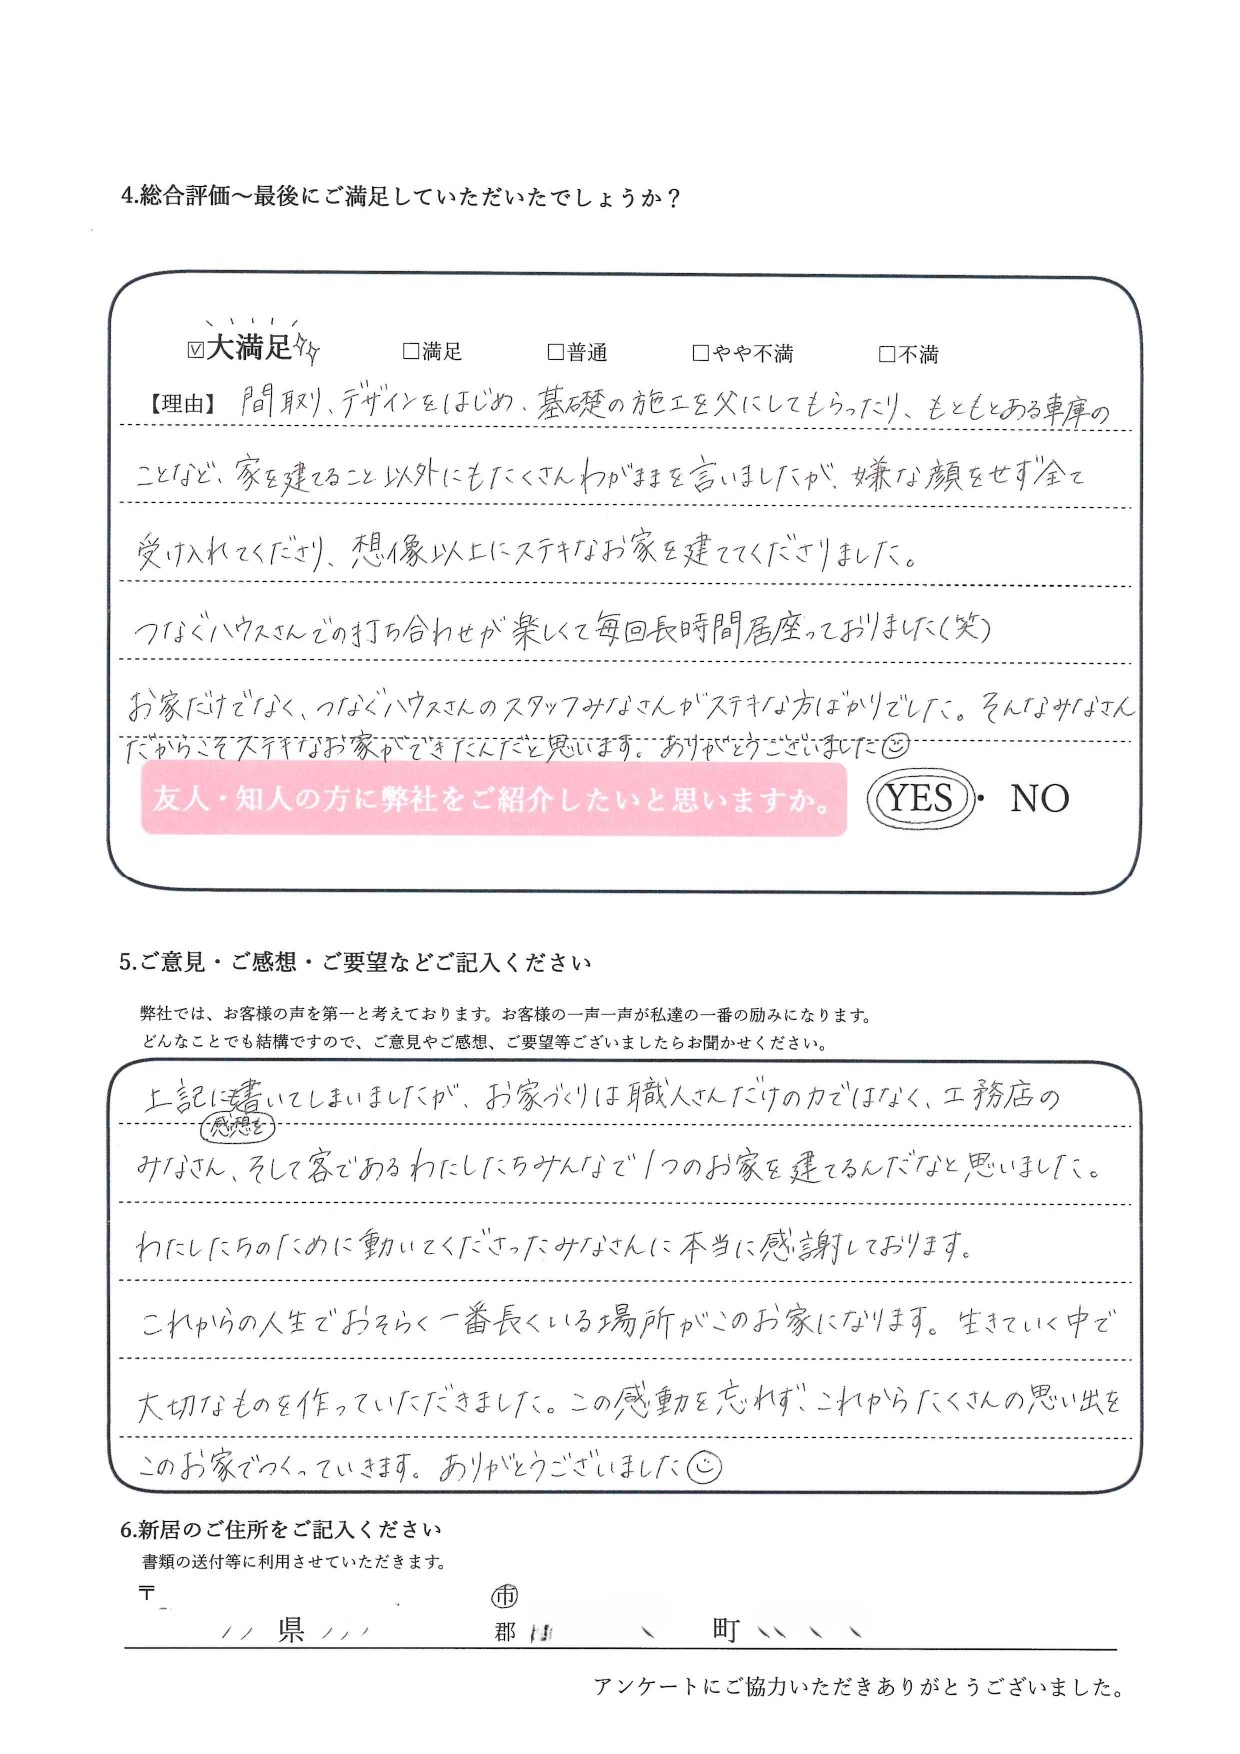 4.総合評価～最後にご満足していただいたでしょうか？
☑大満足 □満足 □普通 □やや不満 □不満
【理由】 間取り、デザインをはじめ、基礎の施工を父にしてもらったり、もともとある車庫の
ことなど、家を建てること以外にもたくさんわがままを言いましたが、嫌な顔をせず全て
受け入れてくださり、想像以上にステキなお家を建ててくださりました。
つなぐハウスさんでの打ち合わせが楽しくて毎回長時間居座っておりました(笑)
お家だけでなく、つなぐハウスさんのスタッフみなさんがステキな方ばかりでした。そんなみなさん
だからこそステキなお家ができたんだと思います。ありがとうございました☺
友人・知人の方に弊社をご紹介したいと思いますか。 YES・NO
5.ご意見・ご感想・ご要望などご記入ください
弊社では、お客様の声を第一と考えております。お客様の一声一声が私達の一番の励みになります。
どんなことでも結構ですので、ご意見やご感想、ご要望等ございましたらお聞かせください。
上記に書いてしまいましたが、お家づくりは職人さんだけの力ではなく、工務店の
感想を
みなさん、そして客であるわたしたちみんなで1つのお家を建てるんだなと思いました。
わたしたちのために動いてくださったみなさんに本当に感謝しております。
これからの人生でおそらく一番長くいる場所がこのお家になります。生きていく中で
大切なものを作っていただきました。この感動を忘れず、これからたくさんの思い出を
このお家でつくっていきます。ありがとうございました☺
6.新居のご住所をご記入ください
書類の送付等に利用させていただきます。
〒 市
県 郡 町
アンケートにご協力いただきありがとうございました。